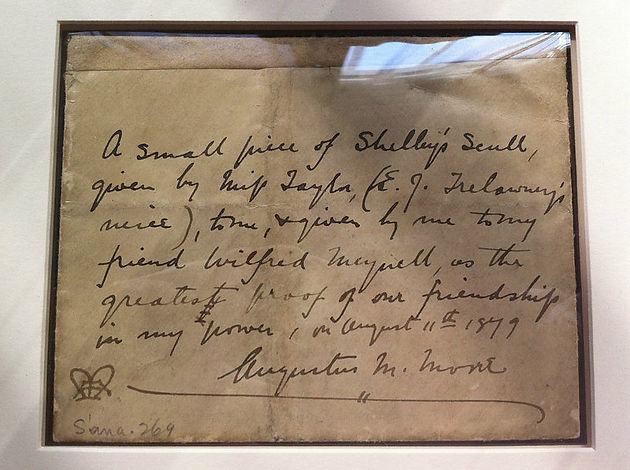 A small piece of Shelley's Scull,
given by Miss Taylor, (E. J. Trelawney's
niece), to me, & given by me to my
friend Wilfred Meynell, as the
greatest proof of our friendship
in my power, on August 11th 1879
Augustus M. Moore
S'ana. 269